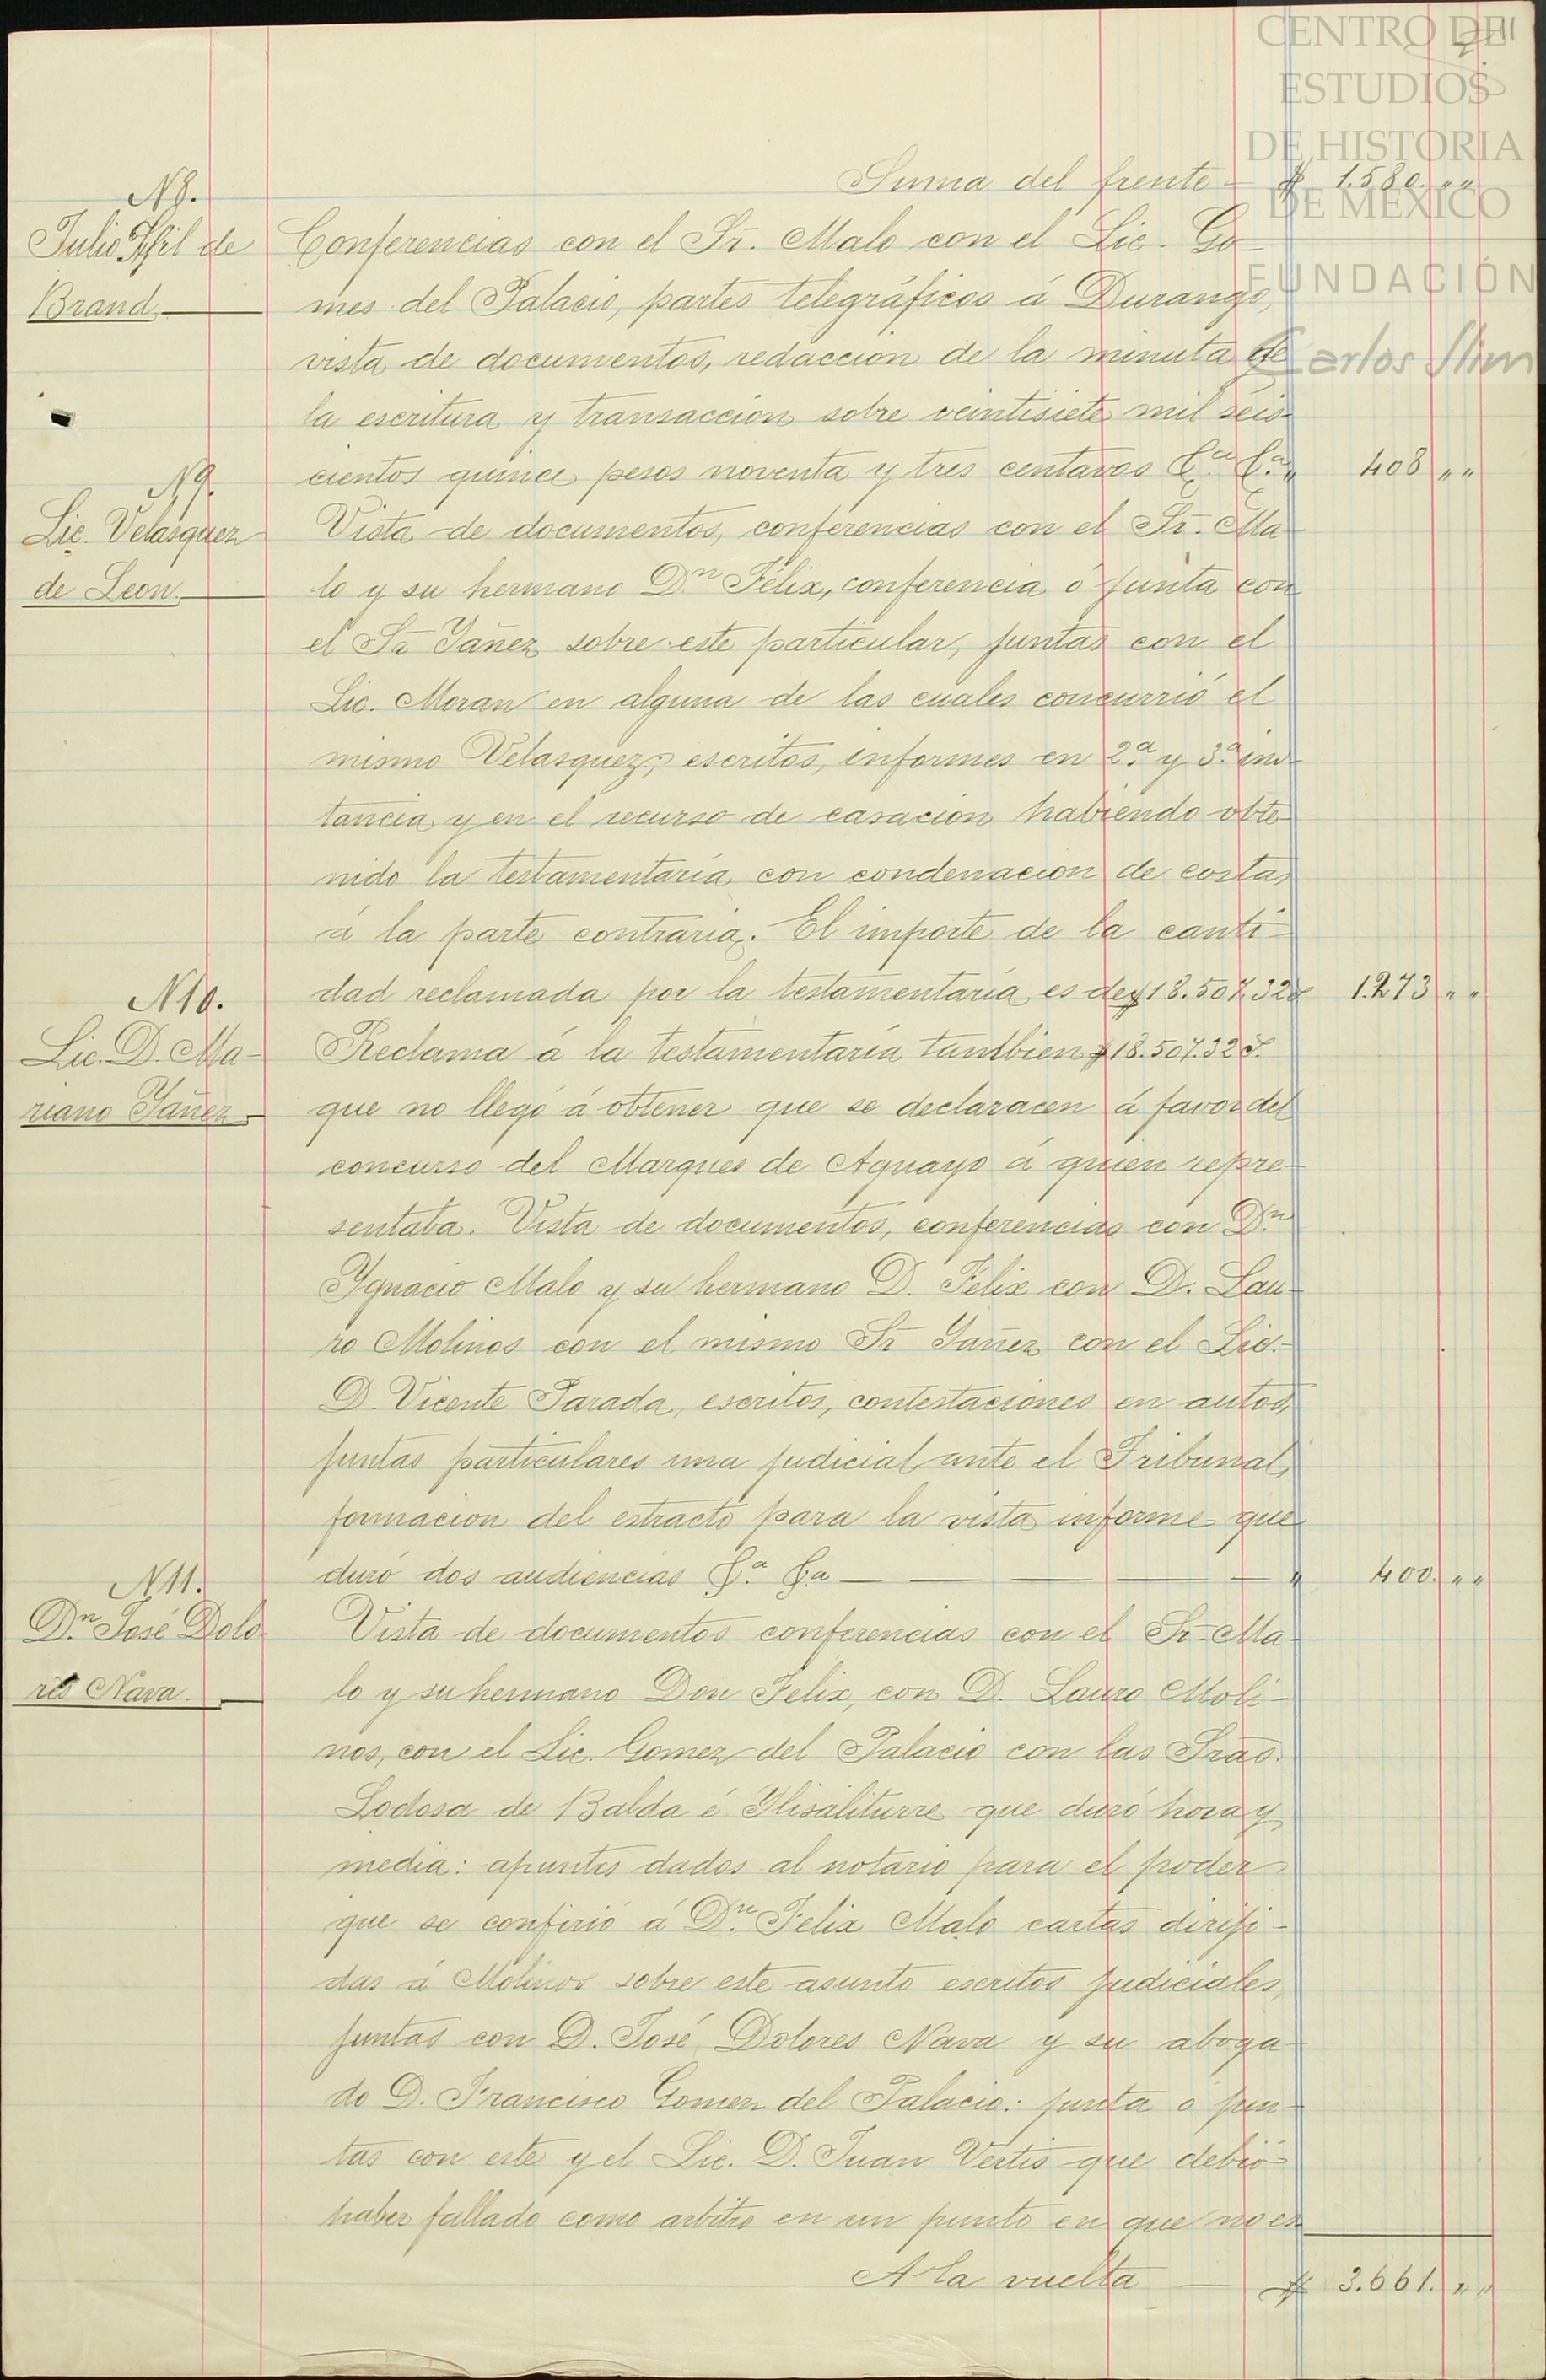 CENTRO DE
ESTUDIOS
DE HISTORIA
DE MÉXICO
FUNDACIÓN
Carlos Slim
Suma del frente — $ 1.580. „ „
N 8.
Julio Hfil de
Brand.
Conferencias con el Sr. Malo con el Lic. Go-
mes del Palacio, partes telegráficos á Durango,
vista de documentos, redaccion de la minuta de
la escritura y transaccion sobre veintisiete mil seis-
cientos quince pesos noventa y tres centavos &.ª &.ª „ 408 „ „
N 9.
Lic. Velasquez
de Leon.
Vista de documentos, conferencias con el Sr. Ma-
lo y su hermano Dn Félix, conferencia ó junta con
el Sr Yañez sobre este particular, juntas con el
Lic. Moran en alguna de las cuales concurrió el
mismo Velasquez; escritos, informes en 2.ª y 3.ª ins-
tancia y en el recurso de casacion habiendo obte-
nido la testamentaría con condenacion de costas
á la parte contraria. El importe de la canti-
dad reclamada por la testamentaría es de $ 18.507.32 1.273 „ „
N 10.
Lic. D. Ma-
riano Yañez
Reclama á la testamentaría tambien $ 18.507.32
que no llegó á obtener que se declaracen á favor del
concurso del Marques de Aguayo á quien repre-
sentaba. Vista de documentos, conferencias con Dn
Ygnacio Malo y su hermano D. Felix con D. Lau-
ro Molinos con el mismo Sr Yañez con el Lic.
D. Vicente Parada, escritos, contestaciones en autos,
juntas particulares una judicial ante el Tribunal,
formacion del estracto para la vista informe que
duró dos audiencias &.ª &.ª — „ 400. „ „
N 11.
Dn José Dolo
res Nava.
Vista de documentos conferencias con el Sr. Ma-
lo y su hermano Don Felix, con D. Lauro Moli-
nos, con el Lic. Gomez del Palacio con las Sras.
Lodosa de Balda é Ylisaliturre que duró hora y
media: apuntes dados al notario para el poder
que se confirió á Dn. Felix Malo cartas diriji-
das á Molinos sobre este asunto escritos judiciales,
juntas con D. José Dolores Nava y su aboga-
do D. Francisco Gomez del Palacio: junta ó jun-
tas con este y el Lic. D. Juan Vertis que debió
haber fallado como arbitro en un punto en que no es-
A la vuelta — $ 3.661. „ „